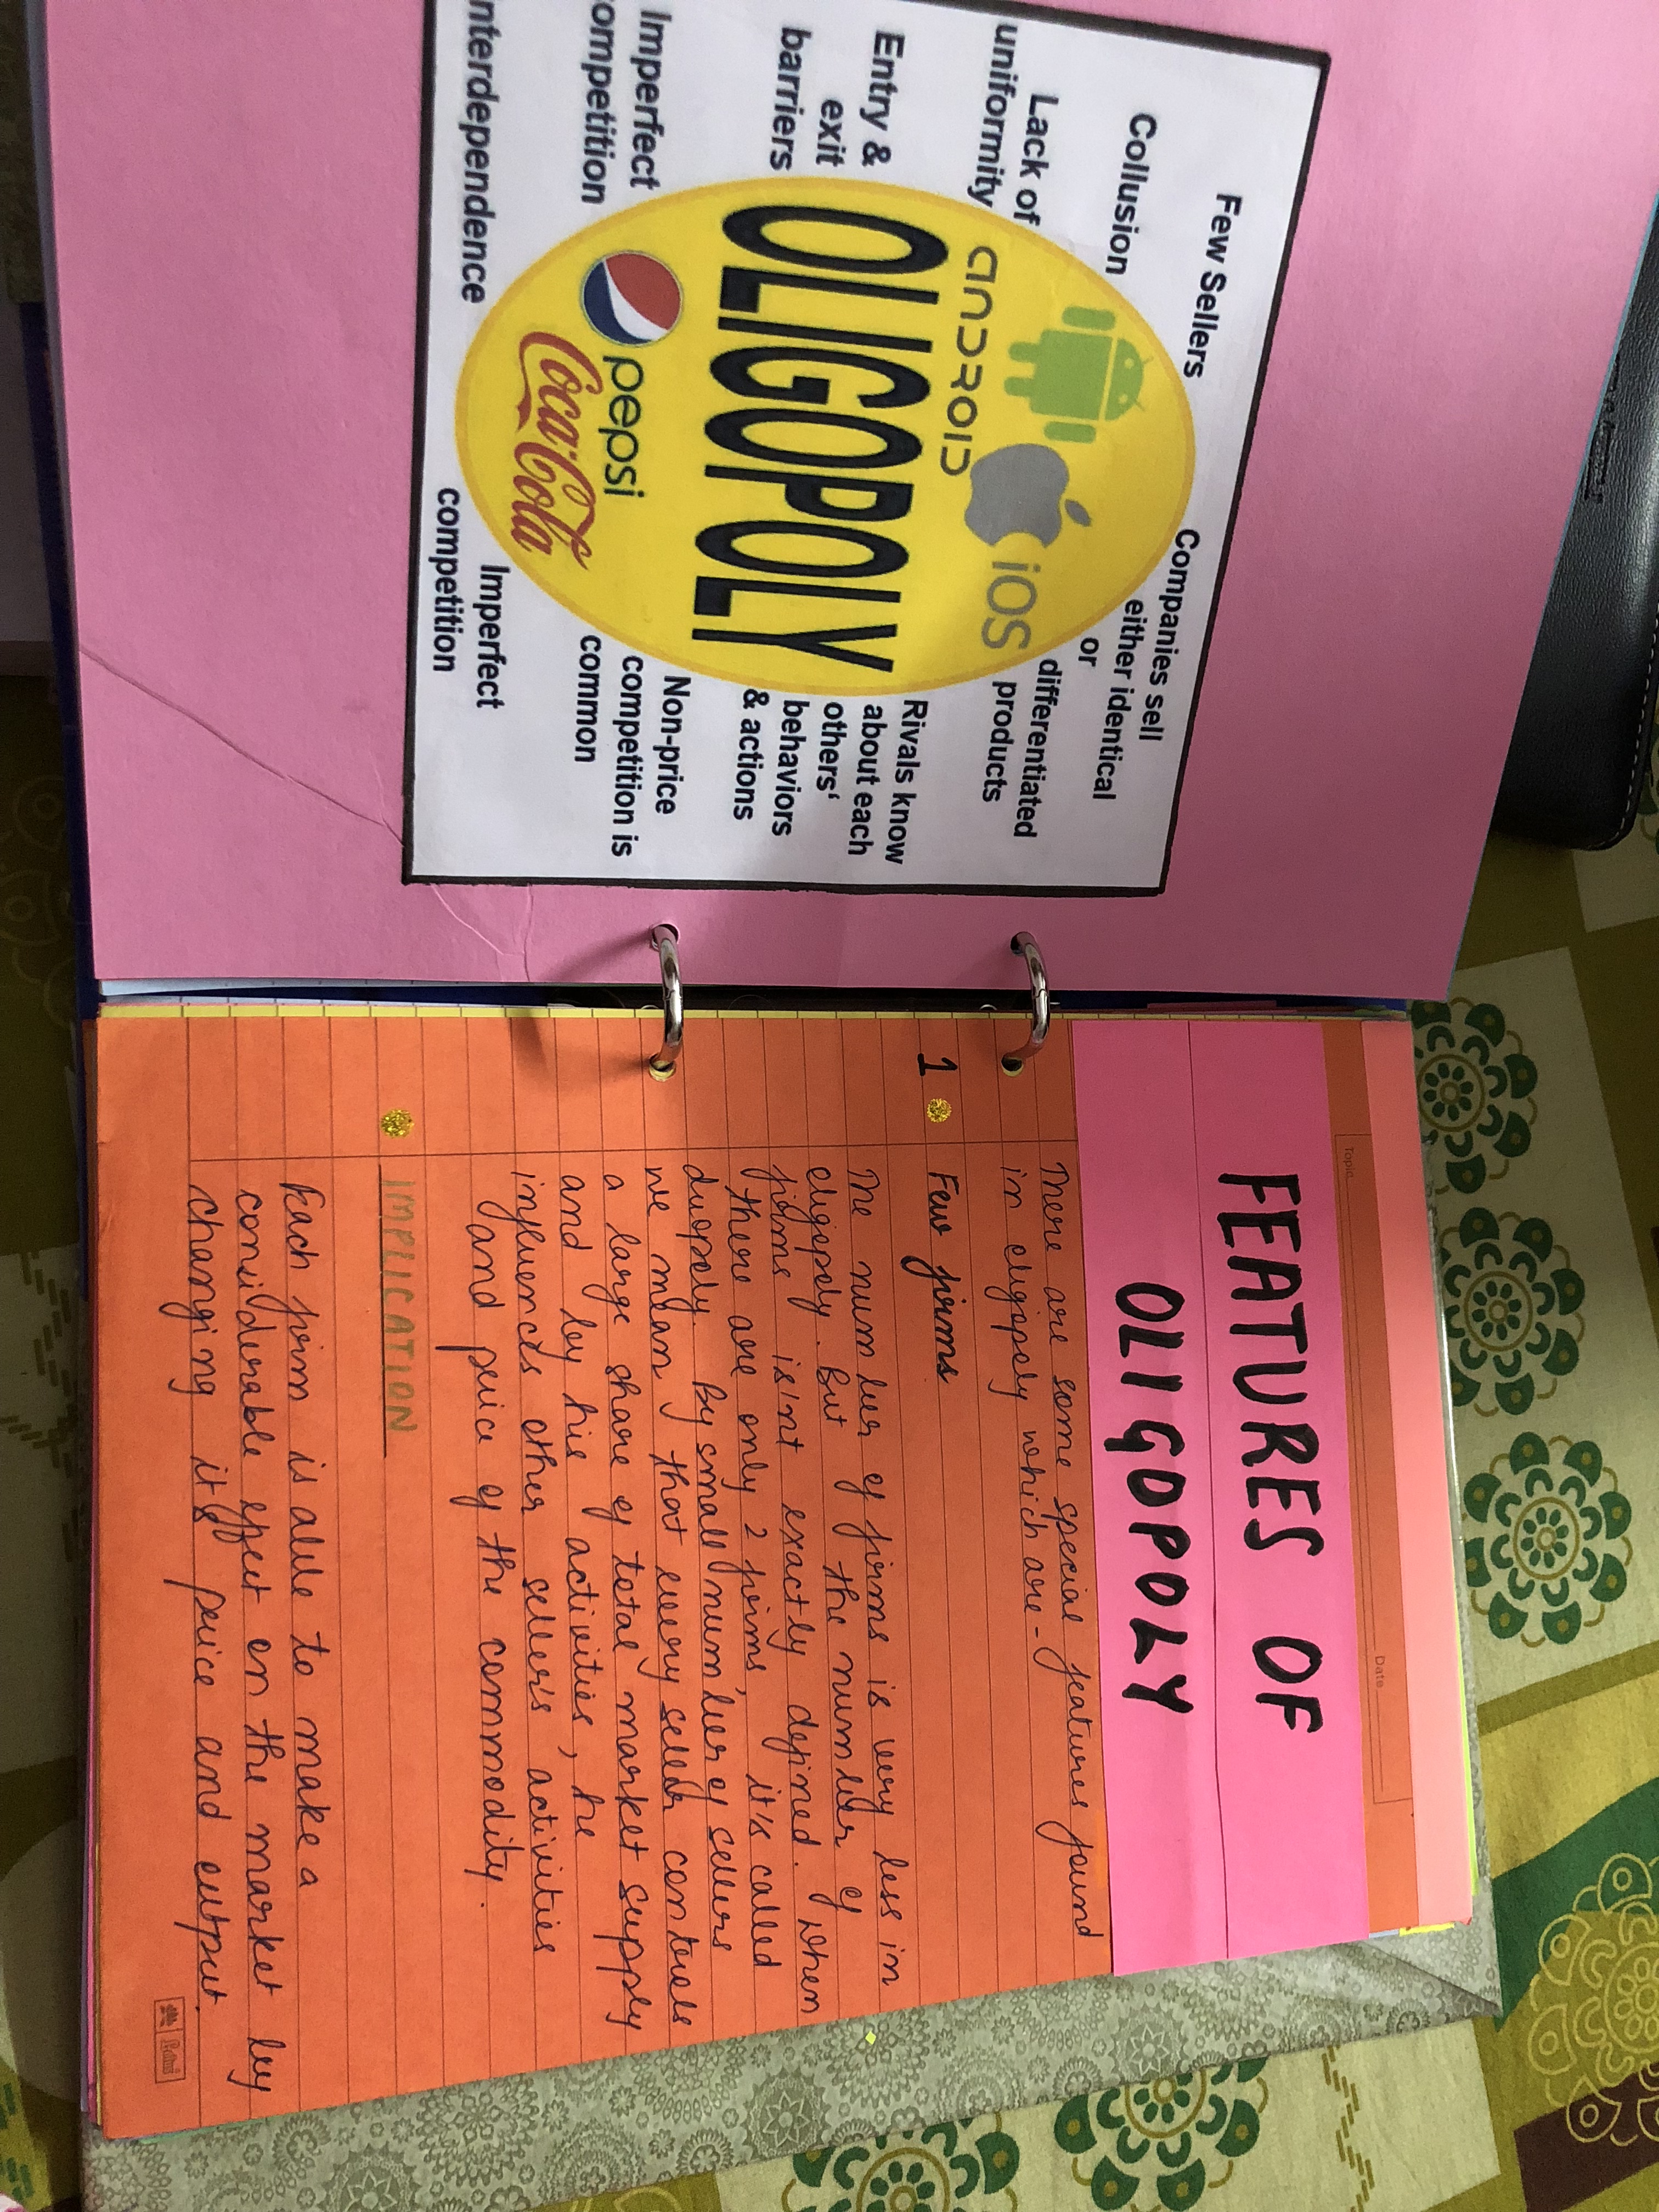 Few Sellers
Collusion
Lack of
uniformity
Entry &
exit
barriers
Imperfect
ompetition
nterdependence
Companies sell
either identical
or
differentiated
products
Rivals know
about each
others‘
behaviors
& actions
Non-price
competition is
common
Imperfect
competition
ANDROID
iOS
OLIGOPOLY
pepsi
Coca-Cola
Topic
Date
FEATURES OF
OLIGOPOLY
There are some special features found
in oligopoly which are -
1 Few firms
The number of firms is very less in
oligopoly. But the number of
firms is'nt exactly defined. When
there are only 2 firms, it's called
duopoly. By small number of sellers
we mean that every seller controls
a large share of total market supply
and by his activities, he
influences other seller's activities
and price of the commodity.
IMPLICATION
Each firm is able to make a
considerable effect on the market by
changing it's price and output.